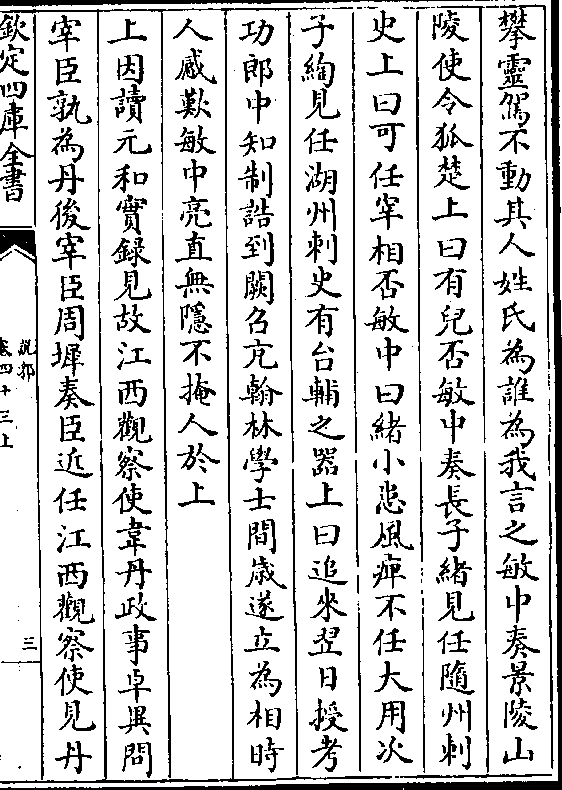 攀靈駕不動其人姓氏為誰為我言之敏中奏景陵山
陵使令狐楚上曰有兒否敏中奏長子緒見任隨州刺
史上曰可任宰相否敏中曰緒小患風痺不任大用次
子綯見任湖州刺史有台輔之器上曰追來翌日授考
功郎中知制誥到闕召充翰林學士間歲遂立為相時
人感歎敏中亮直無隱不掩人於上
上因讀元和實録見故江西觀察使韋丹政事卓異問
宰臣孰為丹後宰臣周墀奏臣近任江西觀察使見丹
欽定四庫全書
說郛
卷四十三上
三